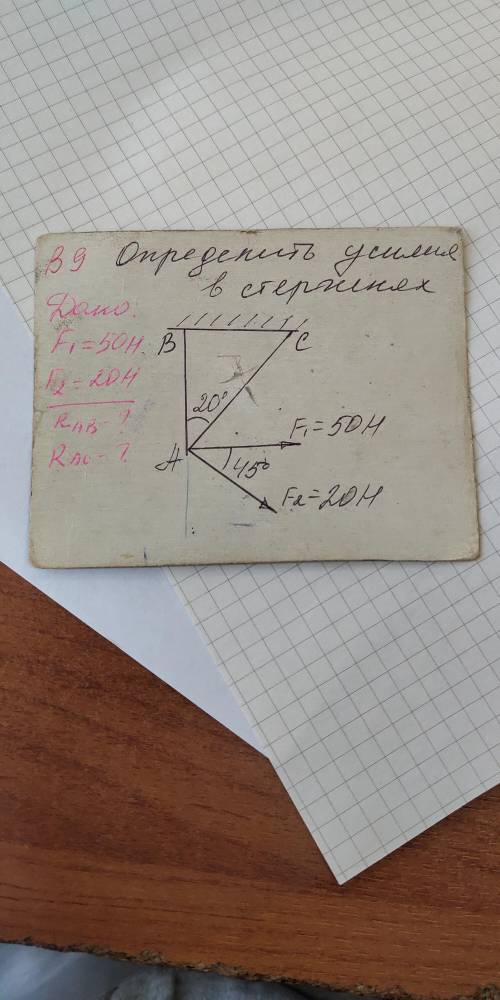 В9 Определить усилия
в стержнях
Дано:
F₁=50Н
F₂=20Н
RАВ-?
RАС-?
В
С
20°
А
F₁=50Н
45°
F₂=20Н